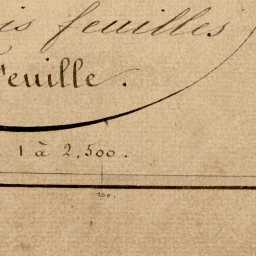 is feuilles
Feuille.
1 à 2,500.